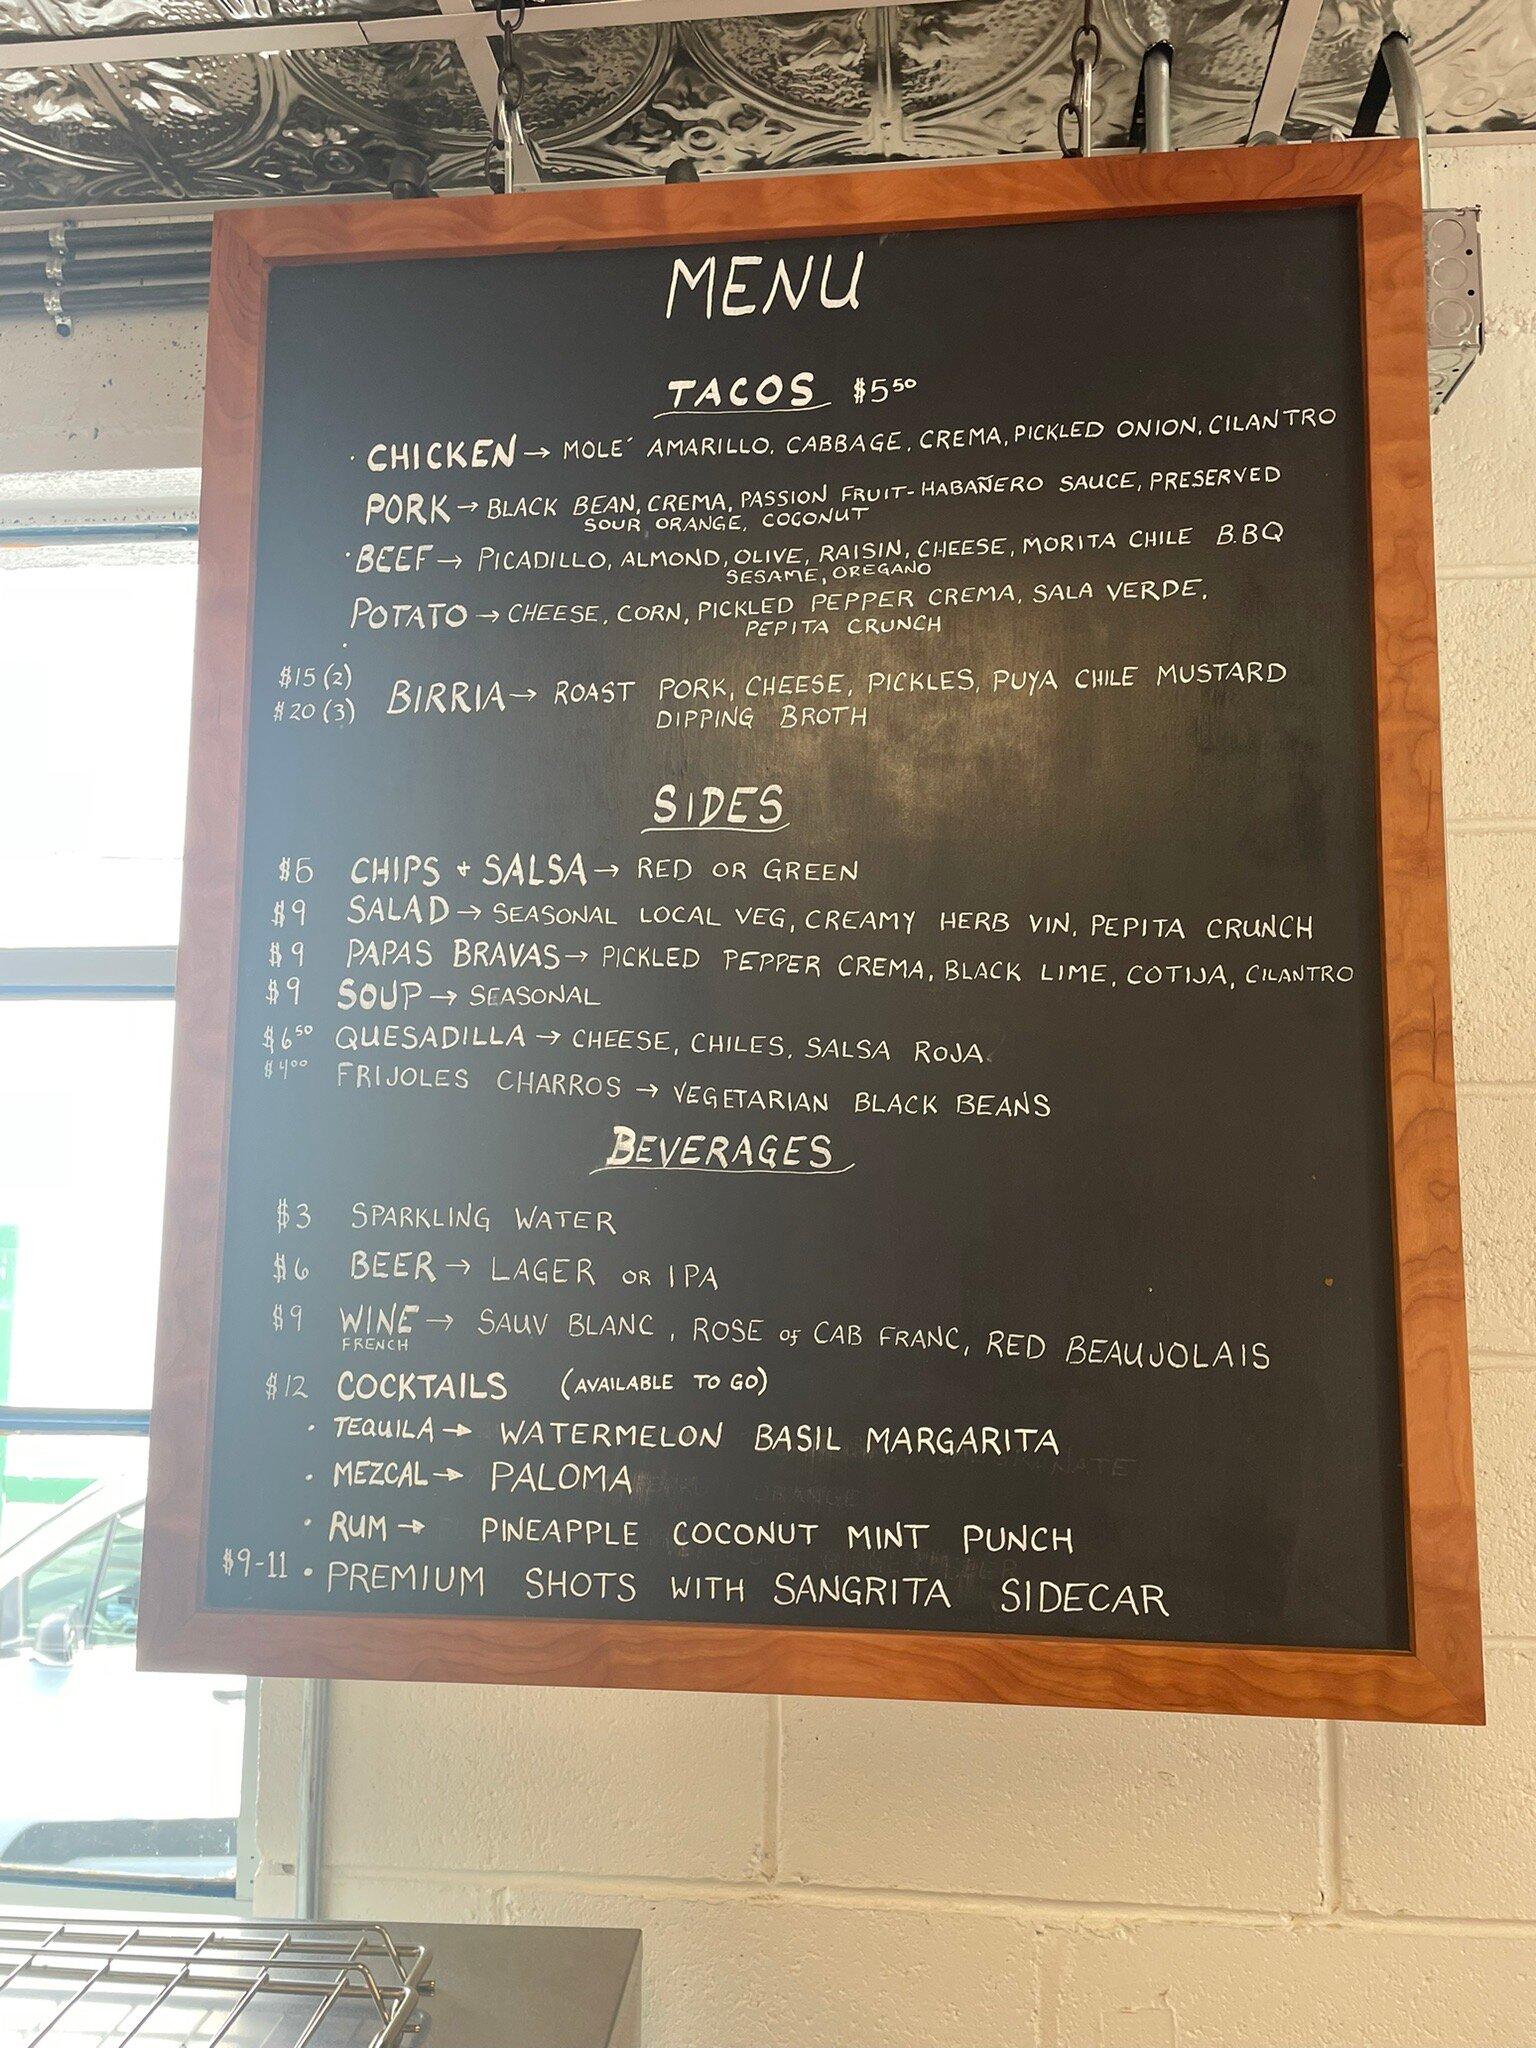 MENU
TACOS $5 50
· CHICKEN → MOLE´ AMARILLO, CABBAGE, CREMA, PICKLED ONION, CILANTRO
PORK → BLACK BEAN, CREMA, PASSION FRUIT-HABAÑERO SAUCE, PRESERVED
SOUR ORANGE, COCONUT
· BEEF → PICADILLO, ALMOND, OLIVE, RAISIN, CHEESE, MORITA CHILE B.BQ
SESAME, OREGANO
POTATO → CHEESE, CORN, PICKLED PEPPER CREMA, SALA VERDE,
PEPITA CRUNCH
$15 (2)
$20 (3)
BIRRIA → ROAST PORK, CHEESE, PICKLES, PUYA CHILE MUSTARD
DIPPING BROTH
SIDES
$5 CHIPS + SALSA → RED OR GREEN
$9 SALAD → SEASONAL LOCAL VEG, CREAMY HERB VIN, PEPITA CRUNCH
$9 PAPAS BRAVAS → PICKLED PEPPER CREMA, BLACK LIME, COTIJA, CILANTRO
$9 SOUP → SEASONAL
$6 50 QUESADILLA → CHEESE, CHILES, SALSA ROJA
$4 00 FRIJOLES CHARROS → VEGETARIAN BLACK BEANS
BEVERAGES
$3 SPARKLING WATER
$6 BEER → LAGER OR IPA
$9 WINE → SAUV BLANC, ROSE of CAB FRANC, RED BEAUJOLAIS
FRENCH
$12 COCKTAILS (AVAILABLE TO GO)
· TEQUILA → WATERMELON BASIL MARGARITA
· MEZCAL → PALOMA
· RUM → PINEAPPLE COCONUT MINT PUNCH
$9-11 · PREMIUM SHOTS WITH SANGRITA SIDECAR